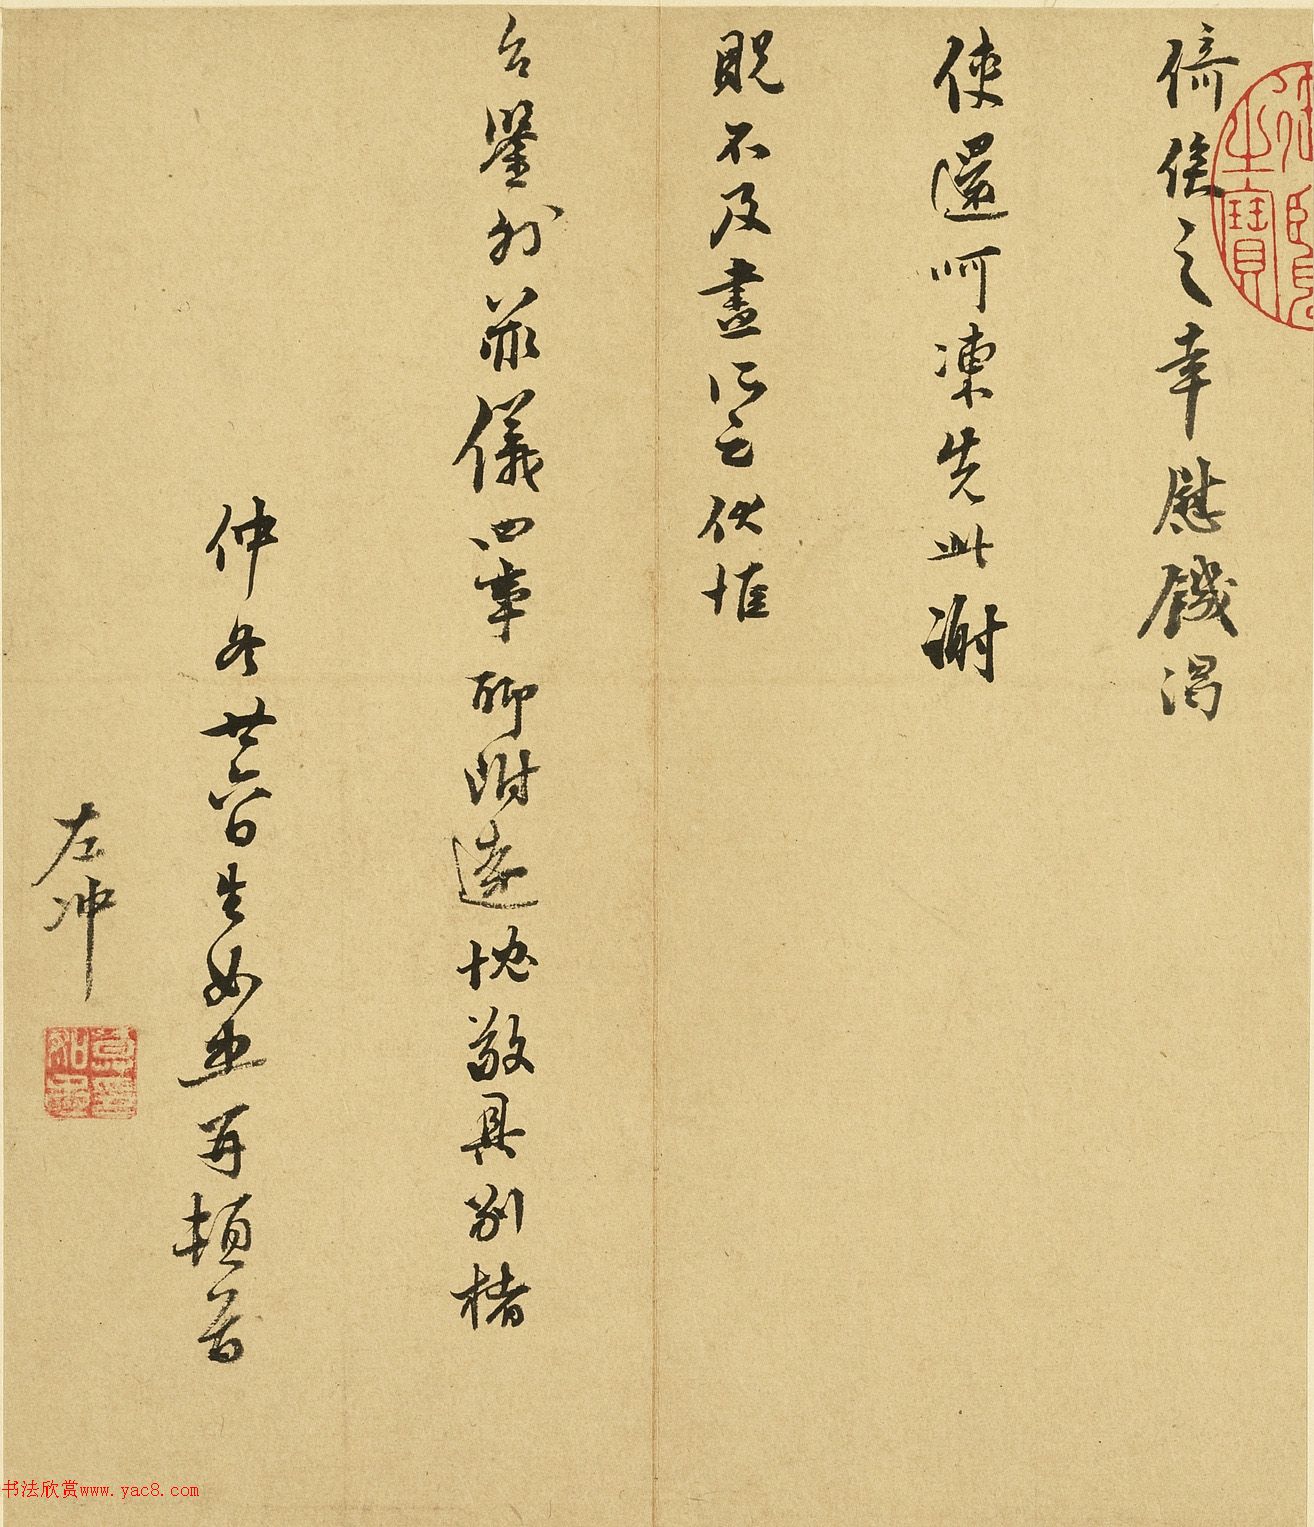 倚俟之幸慰饑渴
使還呵凍先此謝
貺不及盡所云伏惟
台鑒外菲儀四事聊附遠忱敬具別楮
仲冬廿六日生如玉再頓首
左冲
之寶
书法欣赏www.yac8.com